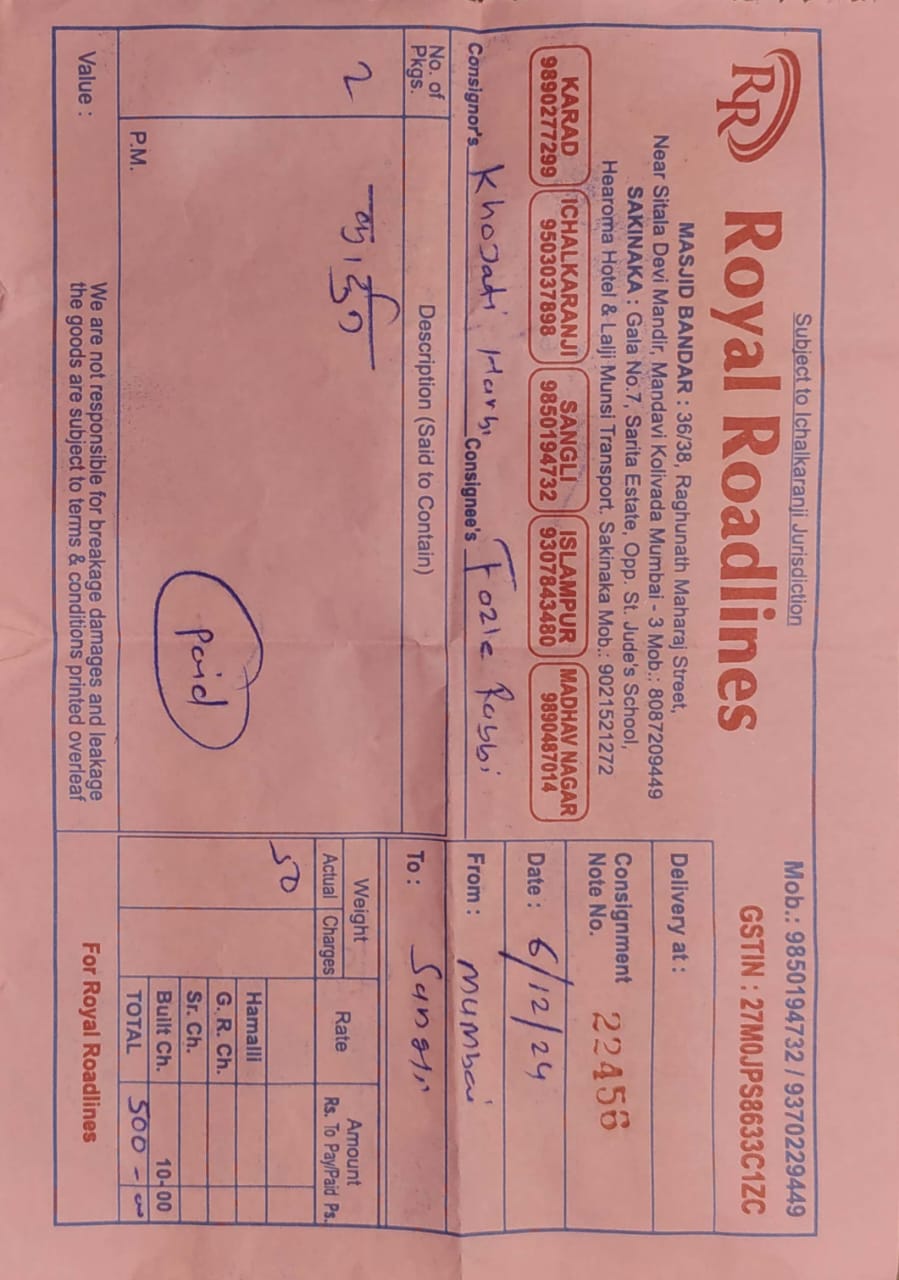 Subject to Ichalkaranji Jurisdiction
Mob.: 9850194732 / 9370229449
RR Royal Roadlines
GSTIN : 27M0JPS8633C1ZC
MASJID BANDAR : 36/38, Raghunath Maharaj Street,
Near Sitala Devi Mandir, Mandavi Kolivada Mumbai - 3 Mob.: 8087209449
SAKINAKA : Gala No.7, Sarita Estate, Opp. St. Jude's School,
Hearoma Hotel & Lalji Munsi Transport, Sakinaka Mob.: 9021521272
KARAD
9890277299
ICHALKARANJI
9503037898
SANGLI
9850194732
ISLAMPUR
9307843480
MADHAV NAGAR
9890487014
Delivery at :
Consignment
Note No. 22456
Date : 6/12/24
Consignor's Khojati Harbi Consignee's Fozle Rabbi
From : Mumbai
To : Sangli
No. of
Pkgs.
Description (Said to Contain)
Weight
Actual Charges
Rate
Amount
Rs. To Pay/Paid Ps.
2
50
Hamalli
G. R. Ch.
Sr. Ch.
Built Ch. 10-00
TOTAL 500-00
Paid
P.M.
Value :
We are not responsible for breakage damages and leakage
the goods are subject to terms & conditions printed overleaf
For Royal Roadlines